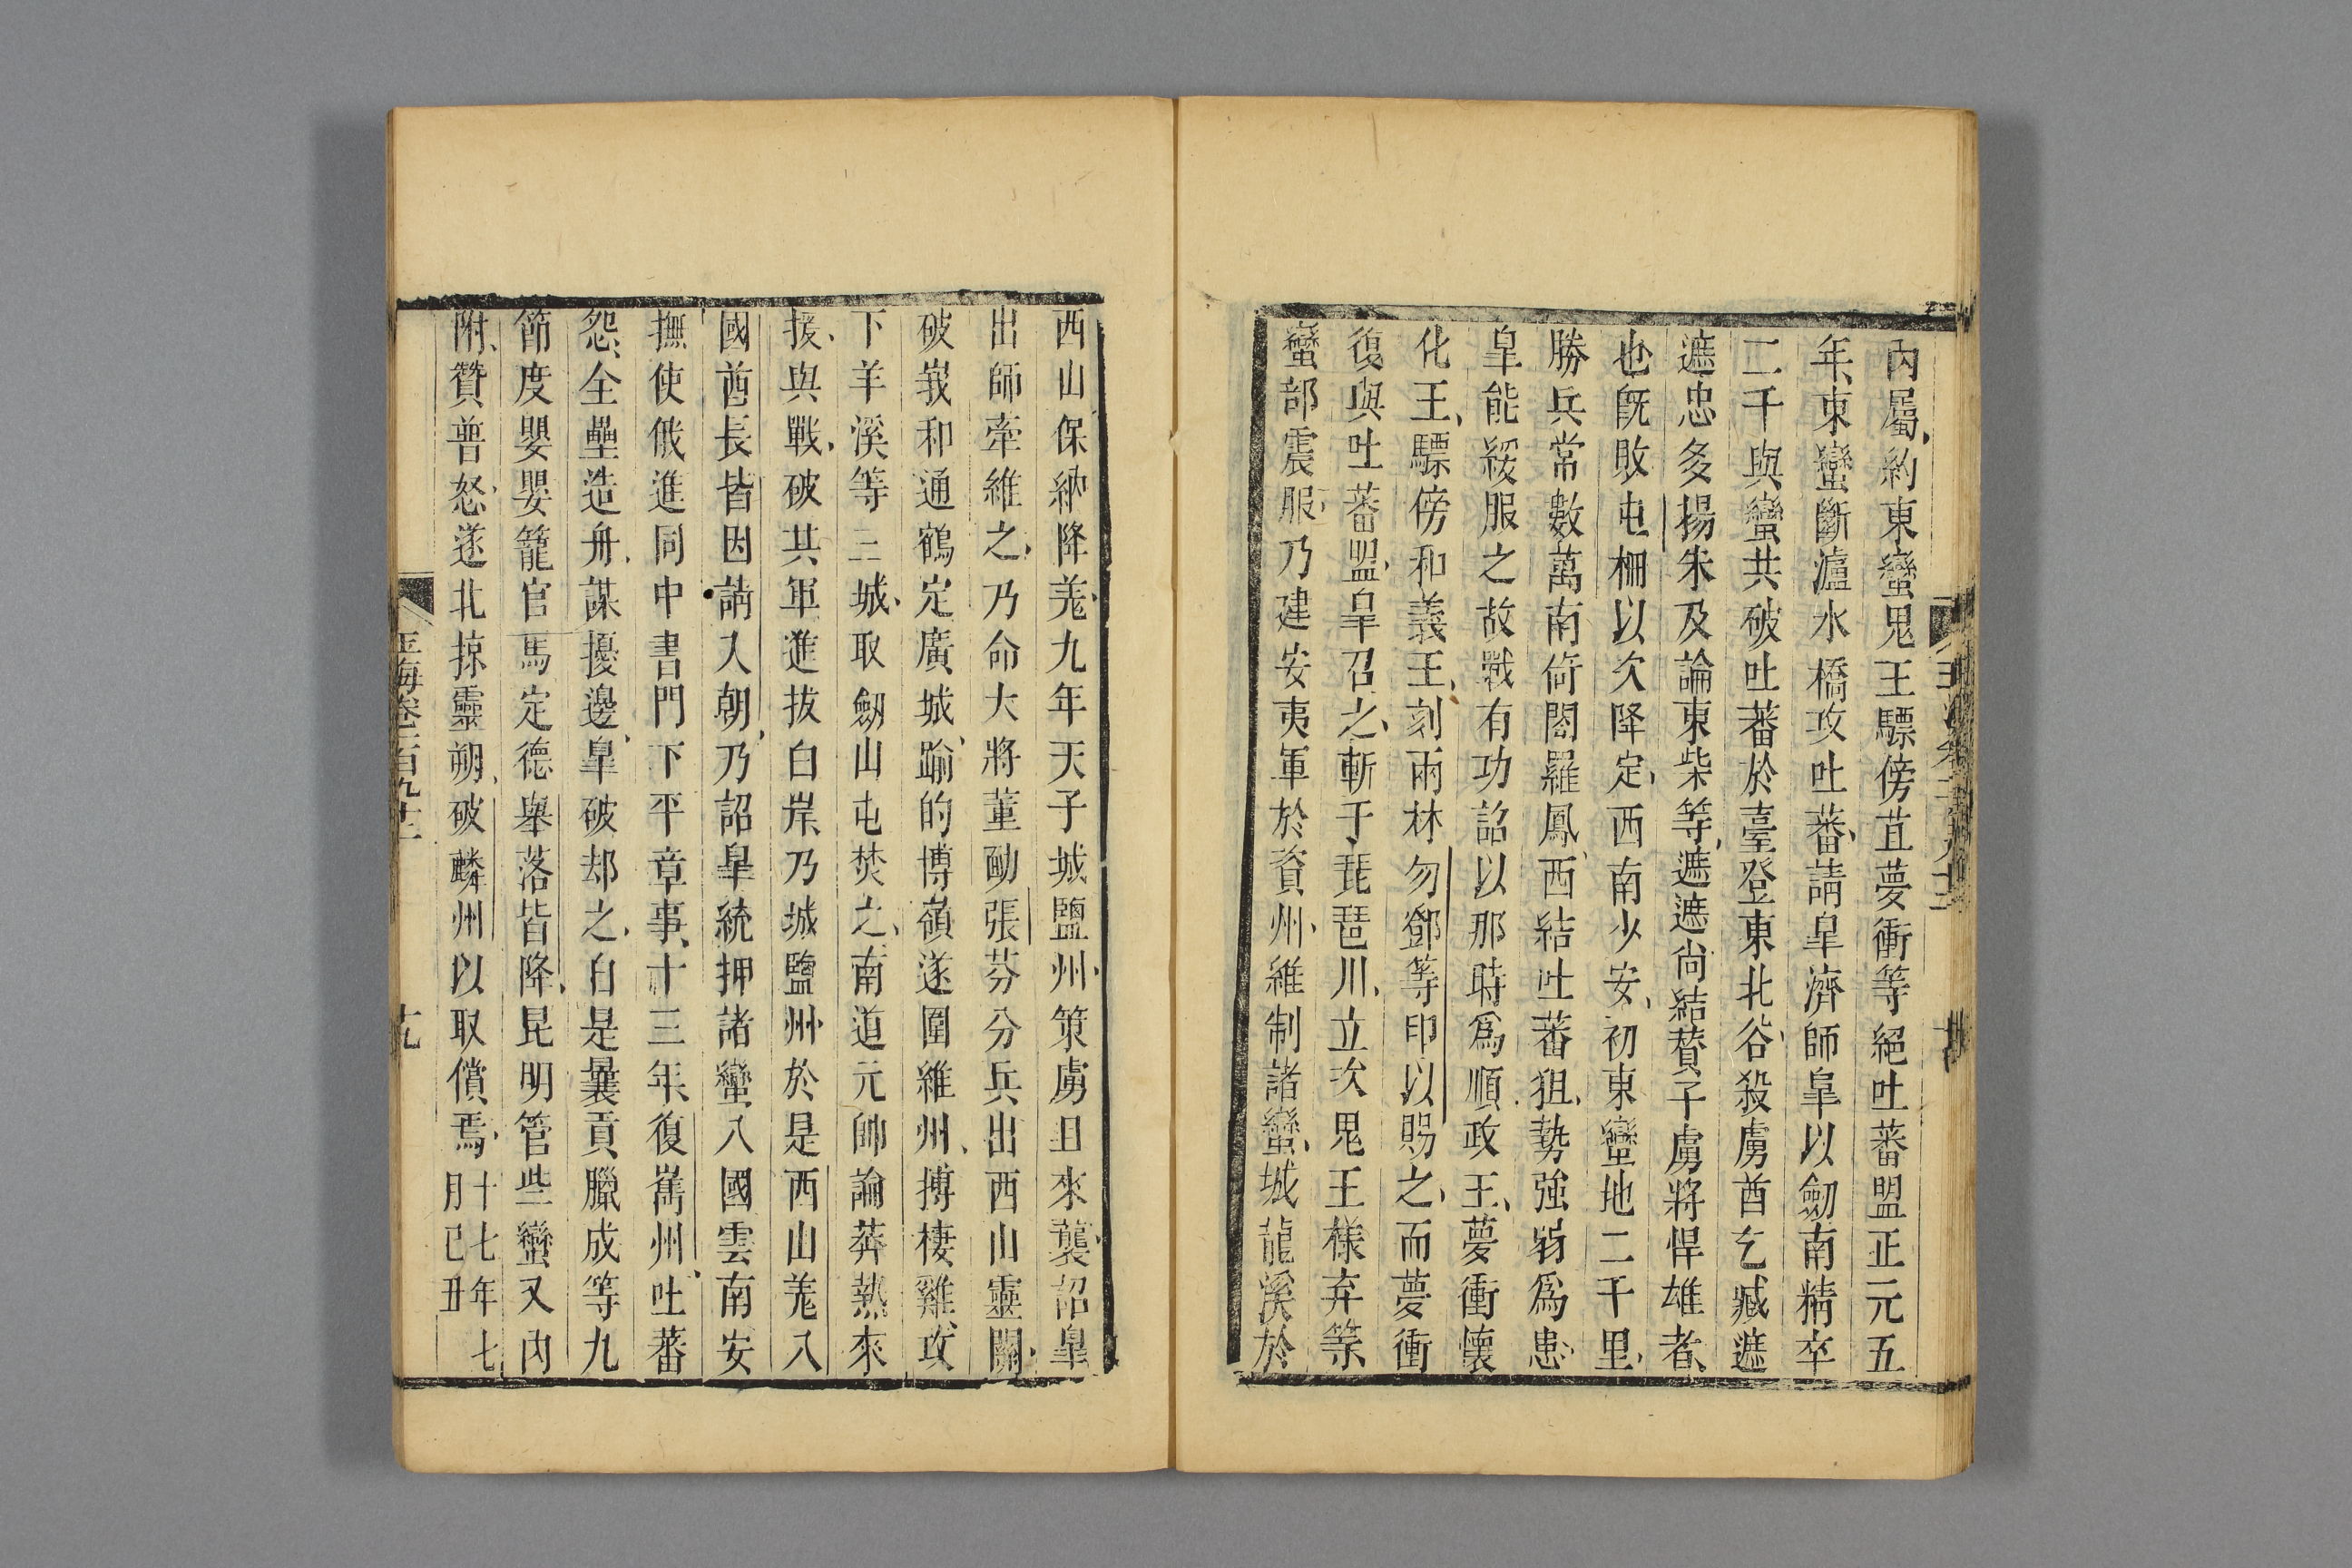 內屬約東蠻鬼王驃傍苴夢衝等絕吐蕃盟正元五
年東蠻斷瀘水橋攻吐蕃請皐濟師皐以劒南精卒
二千與蠻共破吐蕃於臺登東北谷殺虜酋乞臧遮
遮忠多揚朱及論東柴等遮遮尚結贊子虜將悍雄者
也旣敗屯柵以次降定西南少安初東蠻地二千里
勝兵常數萬南倚閤羅鳳西結吐蕃狙勢強弱爲患
皐能綏服之故戰有功詔以那時爲順政王夢衝懷
化王驃傍和義王刻兩林勿鄧等印以賜之而夢衝
復與吐蕃盟皐召之斬于琵琶川立次鬼王樣弃等
蠻部震服乃建安夷軍於資州維制諸蠻城龍溪於
西山保納降羌九年天子城鹽州策虜且來襲詔皐
出師牽維之乃命大將董勔張芬分兵出西山靈關
破峩和通鶴定廣城踰的博嶺遂圍維州搏棲雞攻
下羊溪等三城取劒山屯焚之南道元帥論莽熱來
援與戰破其軍進拔白岸乃城鹽州於是西山羌八
國酋長皆因請入朝乃詔皐統押諸蠻八國雲南安
撫使俄進同中書門下平章事十三年復巂州吐蕃
怨全壘造舟謀擾邊皐破却之自是曩貢臘成等九
節度嬰嬰籠官馬定德舉落皆降昆明管些蠻又內
附贊普怒遂北掠靈朔破麟州以取償焉十七年七
月己丑
玉海卷一百九十一
十九